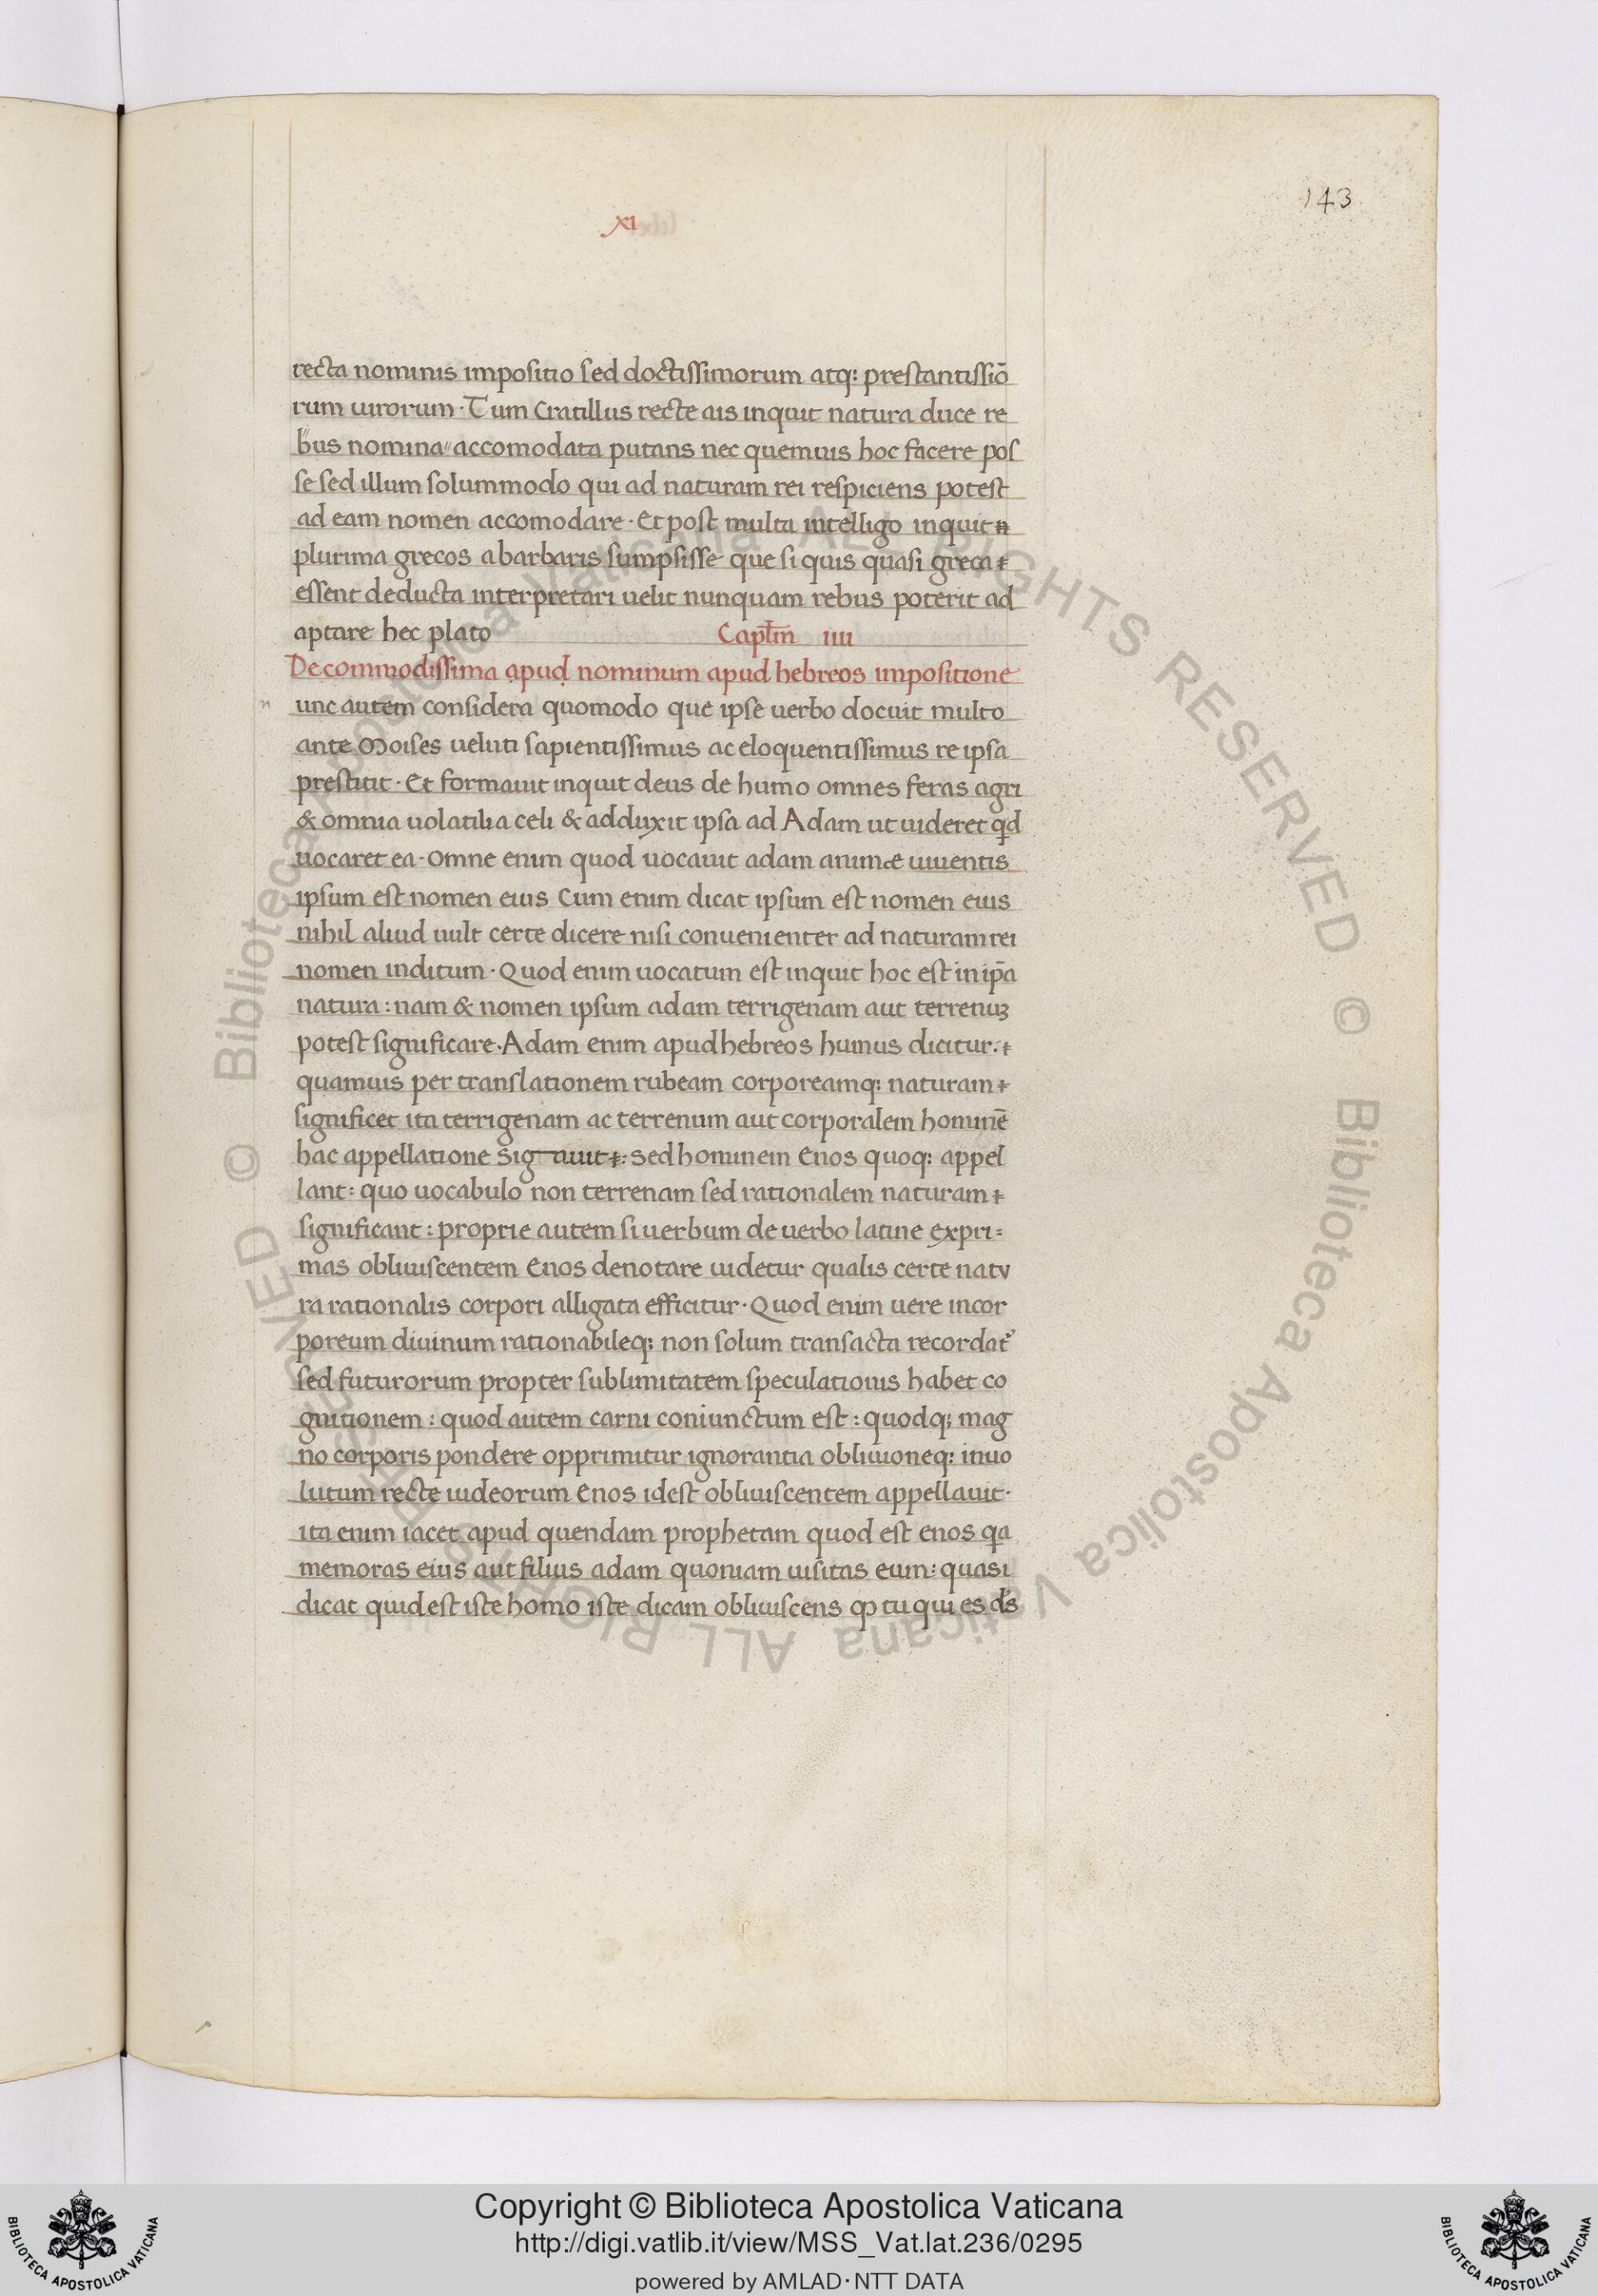 143
xi
recta nominis impositio sed doctissimorum atq: prestantissiō
rum uirorum · Tum Cratillus recte ais inquit natura duce re
bus nomina accomodata putans nec quemuis hoc facere pos
se sed illum solummodo qui ad naturam rei respiciens potest
ad eam nomen accomodare · Et post multa intelligo inquit
plurima grecos a barbaris sumpsisse que si quis quasi greca
essent deducta interpretari uelit nunquam rebus poterit ad
aptare hec plato Captm̄ iiii
De commodissima apud nominum apud hebreos impositione
n unc autem considera quomodo que ipse uerbo docuit multo
ante Moises ueluti sapientissimus ac eloquentissimus re ipsa
prestitit · Et formauit inquit deus de humo omnes feras agri
& omnia uolatilia celi & adduxit ipsa ad Adam ut uideret qd
uocaret ea · Omne enim quod uocauit adam animæ uiuentis
ipsum est nomen eius Cum enim dicat ipsum est nomen eius
nihil aliud uult certe dicere nisi conuenienter ad naturam rei
nomen inditum · Quod enim uocatum est inquit hoc est in ip̄a
natura : nam & nomen ipsum adam terrigenam aut terrenuz
potest significare · Adam enim apud hebreos humus dicitur :
quamuis per translationem rubeam corpoream q: naturam
significet ita terrigenam ac terrenum aut corporalem hominē
hac appellatione sig auit : sed hominem Enos quoq: appel
lant : quo uocabulo non terrenam sed rationalem naturam
significant : proprie autem si uerbum de uerbo latine expri=
mas obliuiscentem Enos denotare uidetur qualis certe natu
ra rationalis corpori alligata efficitur · Quod enim uere incor
poreum diuinum rationabileq: non solum transacta recordat᾿
sed futurorum propter sublimitatem speculationis habet co
gnitionem : quod autem carni coniunctum est : quodq; mag
no corporis pondere opprimitur ignorantia obliuioneq: inuo
lutum recte iudeorum Enos idest obliuiscentem appellauit ·
ita enim iacet apud quendam prophetam quod est enos qa
memoras eius aut filius adam quoniam uisitas eum : quasi
dicat quid est iste homo iste dicam obliuiscens qp tu qui es ds
© Biblioteca Apostolica Vaticana ALL RIGHTS RESERVED © Biblioteca Apostolica Vaticana ALL RIGHTS RESERVED
Copyright © Biblioteca Apostolica Vaticana
http://digi.vatlib.it/view/MSS_Vat.lat.236/0295
powered by AMLAD·NTT DATA
BIBLIOTECA APOSTOLICA VATICANA
BIBLIOTECA APOSTOLICA VATICANA